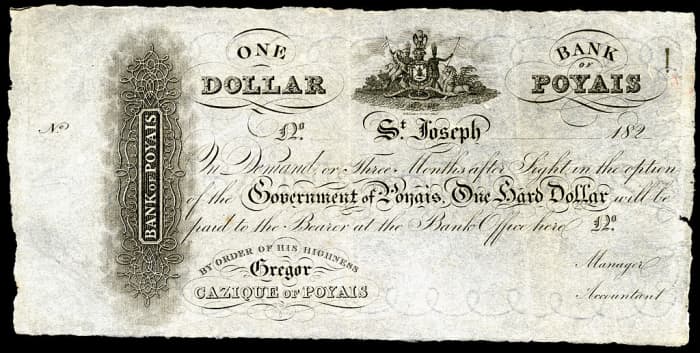 ONE
DOLLAR
BANK
OF
POYAIS
No
No St. Joseph 182
On Demand, or Three Months after Sight in the option
of the Government of Poyais, One Hard Dollar will be
paid to the Bearer at the Bank Office here No
BY ORDER OF HIS HIGHNESS
Gregor
CAZIQUE OF POYAIS
Manager
Accountant
BANK OF POYAIS